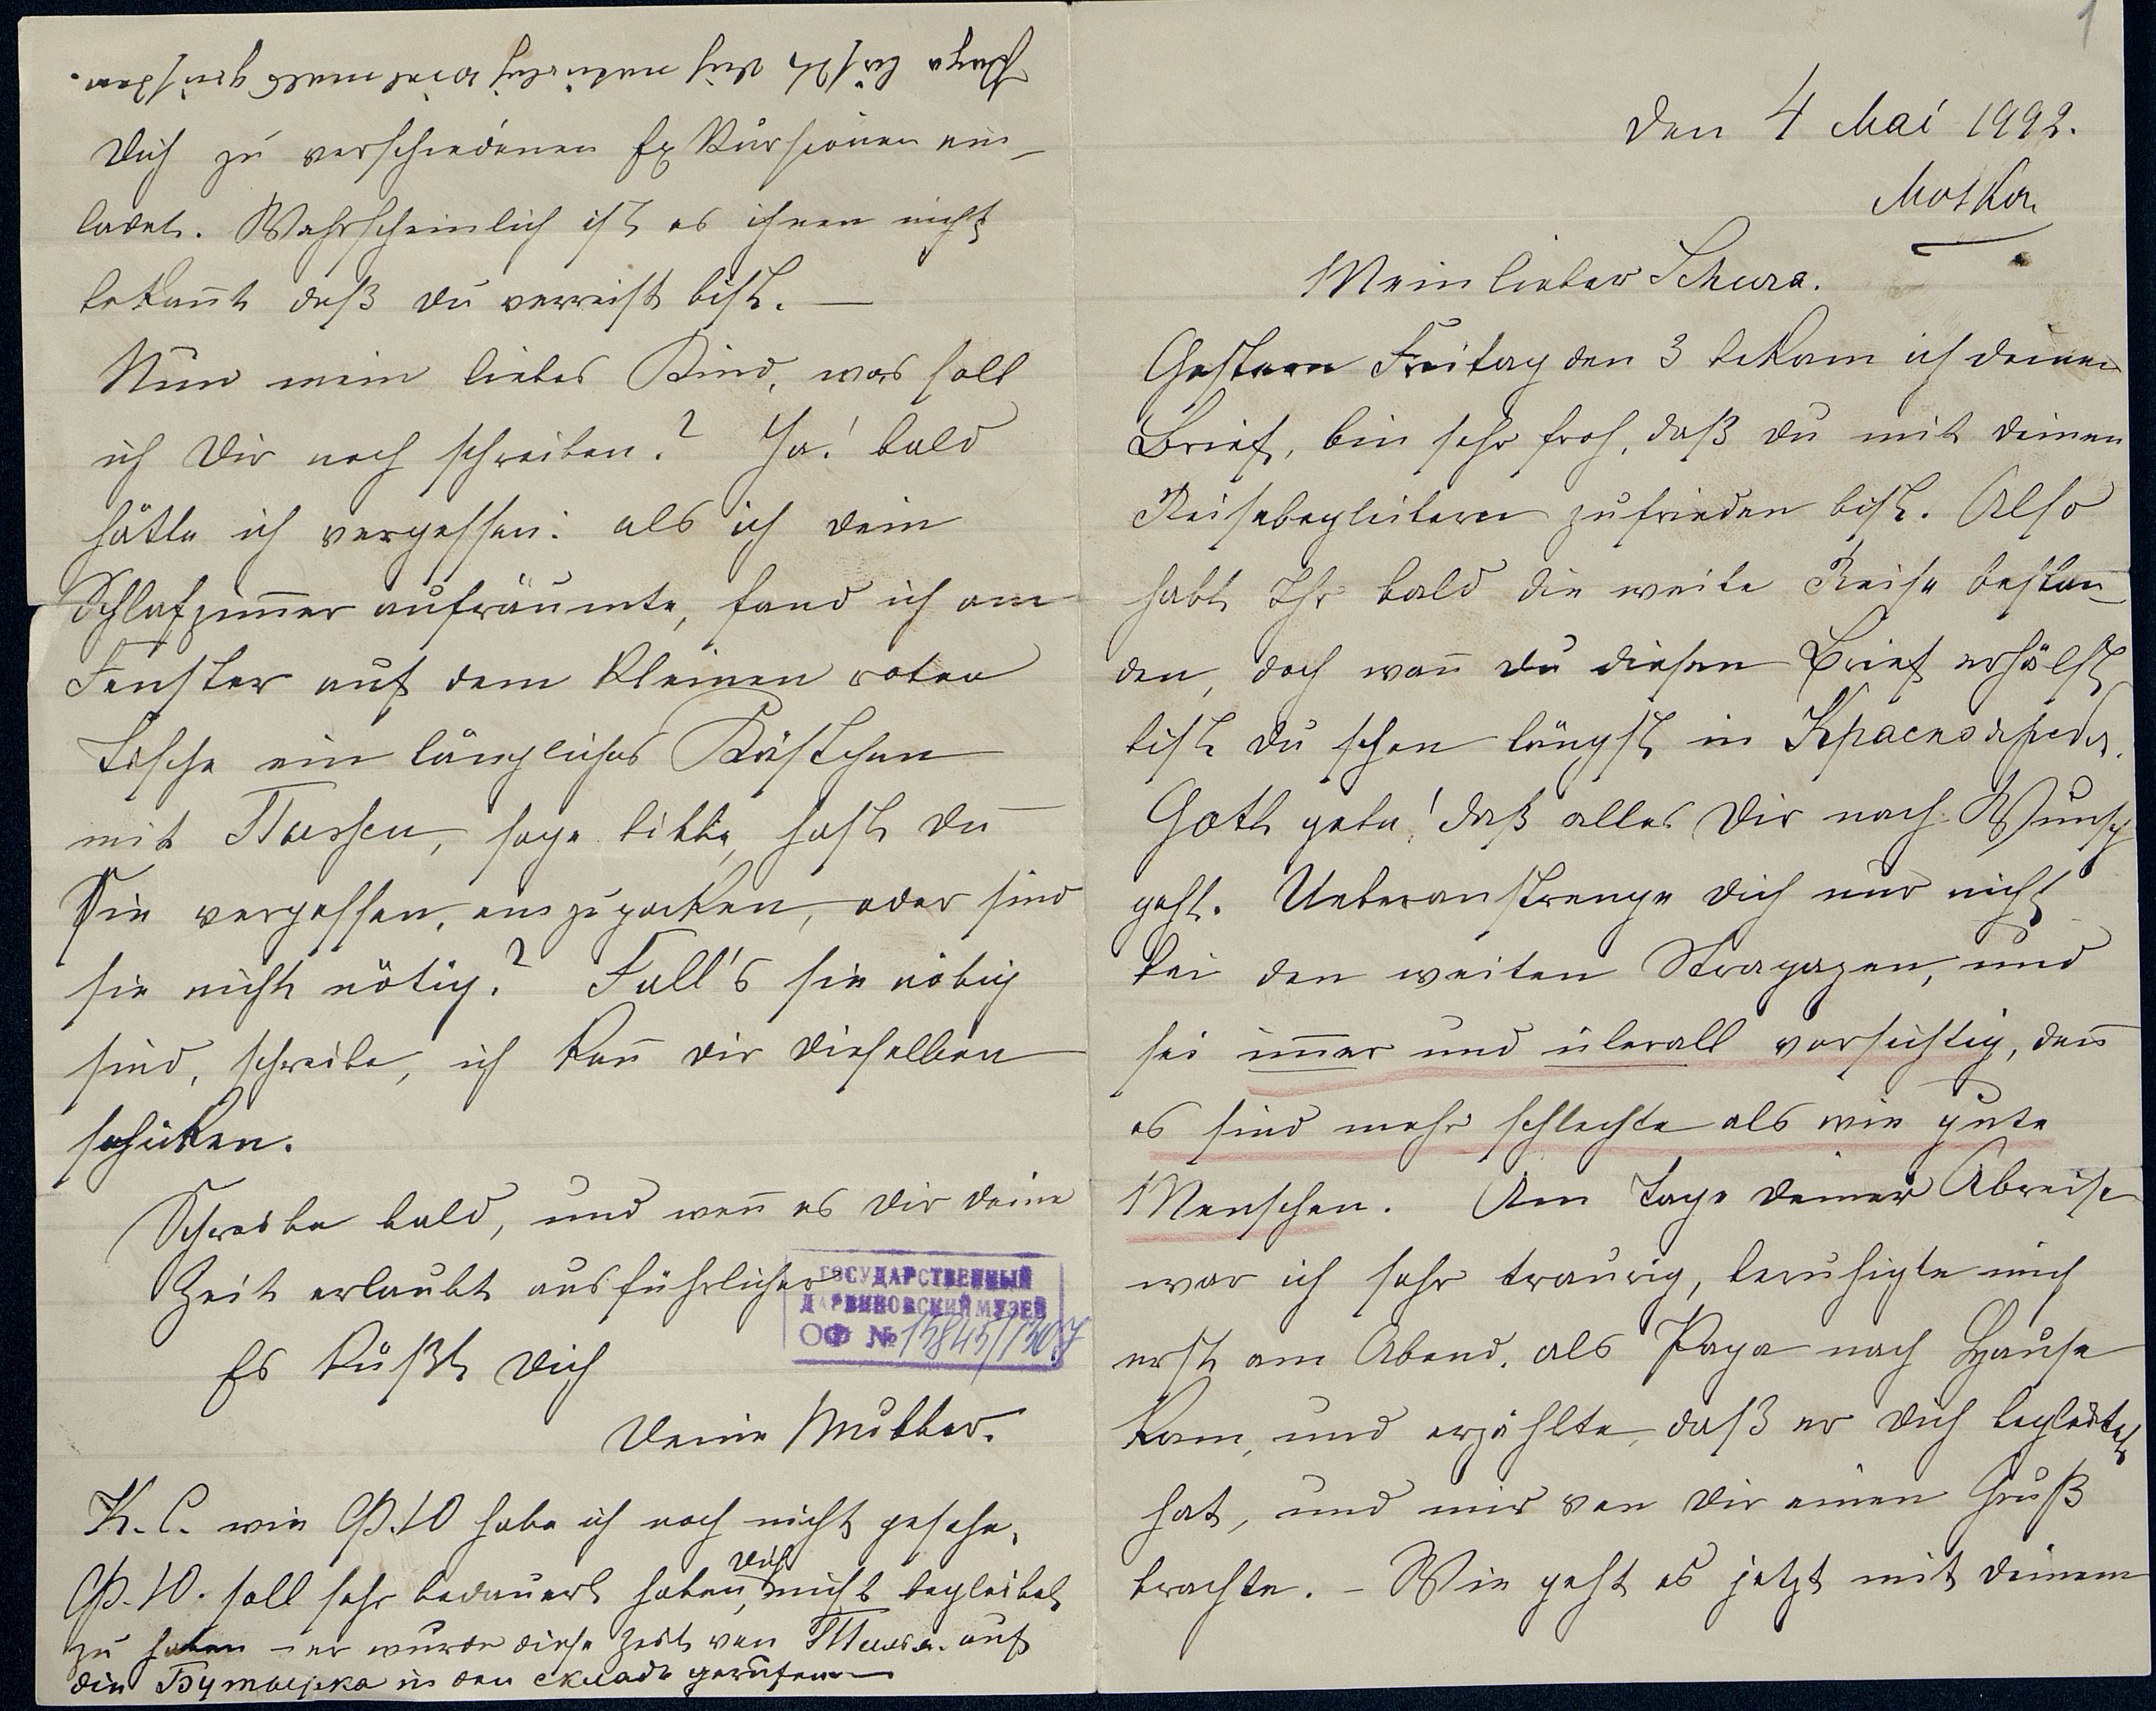 1
Den 4 Mai 1992.
Moskau
Mein lieber Schura.
Gestern Freitag den 3 bekam ich deinen
Brief, bin sehr froh, daß du mit deinen
Reisebegleitern zufrieden bist. Also
habt Ihr bald die weite Reise bestan-
den, doch wan̄ du diesen Brief erhälst
bist du schon längst in
Gott gebe! daß alles Dir nach Wunsch
geht. Ueberanstrenge Dich nur nicht
bei den weiten Strapazen, und
sei im̄er und überall vorsichtig, den̄
es sind mehr schlechte als wie gute
Menschen. Am Tage deiner Abreise
war ich sehr traurig, beruhigte mich
erst am Abend, als Papa nach Hause
kam, und erzählte, daß er Dich begleitet
hat, und mir von Dir einen Gruß
brachte. – Wie geht es jetzt mit deinem
Papa läßt Dich natürlich vielmals grüßen.
Dich zu verschiedenen Exkursionen ein-
ladet. Wahrscheinlich ist es ihnen nicht
bekan̄t daß du verreist bist. —
Nun mein liebes Kind, was soll
ich Dir noch schreiben? Ja! bald
hätte ich vergessen: als ich dein
Schlafzim̄er aufräumte, fand ich am
Fenster auf dem kleinen roten
Tische ein längliches Kästchen
mit, sage bitte, hast du
Sie vergessen, einzupacken, oder sind
sie nicht nötig? Fall's sie nötig
sind, schreibe, ich kan̄ dir dieselben
schicken.
Schreibe bald, und wen̄ es dir deine
Zeit erlaubt ausführlicher
Es küßt Dich
Deine Mutter.
К. С. wie Ф. Ю habe ich noch nicht gesehn,
Ф. Ю. soll sehr bedauert haben, Dich nicht begleitet
zu haben – er wurde diese Zeit von auf
die Бутырка in den складъ gerufen —
ГОСУДАРСТВЕННЫЙ
ДАРВИНОВСКИЙ МУЗЕЙ
ОФ № 13845/1307